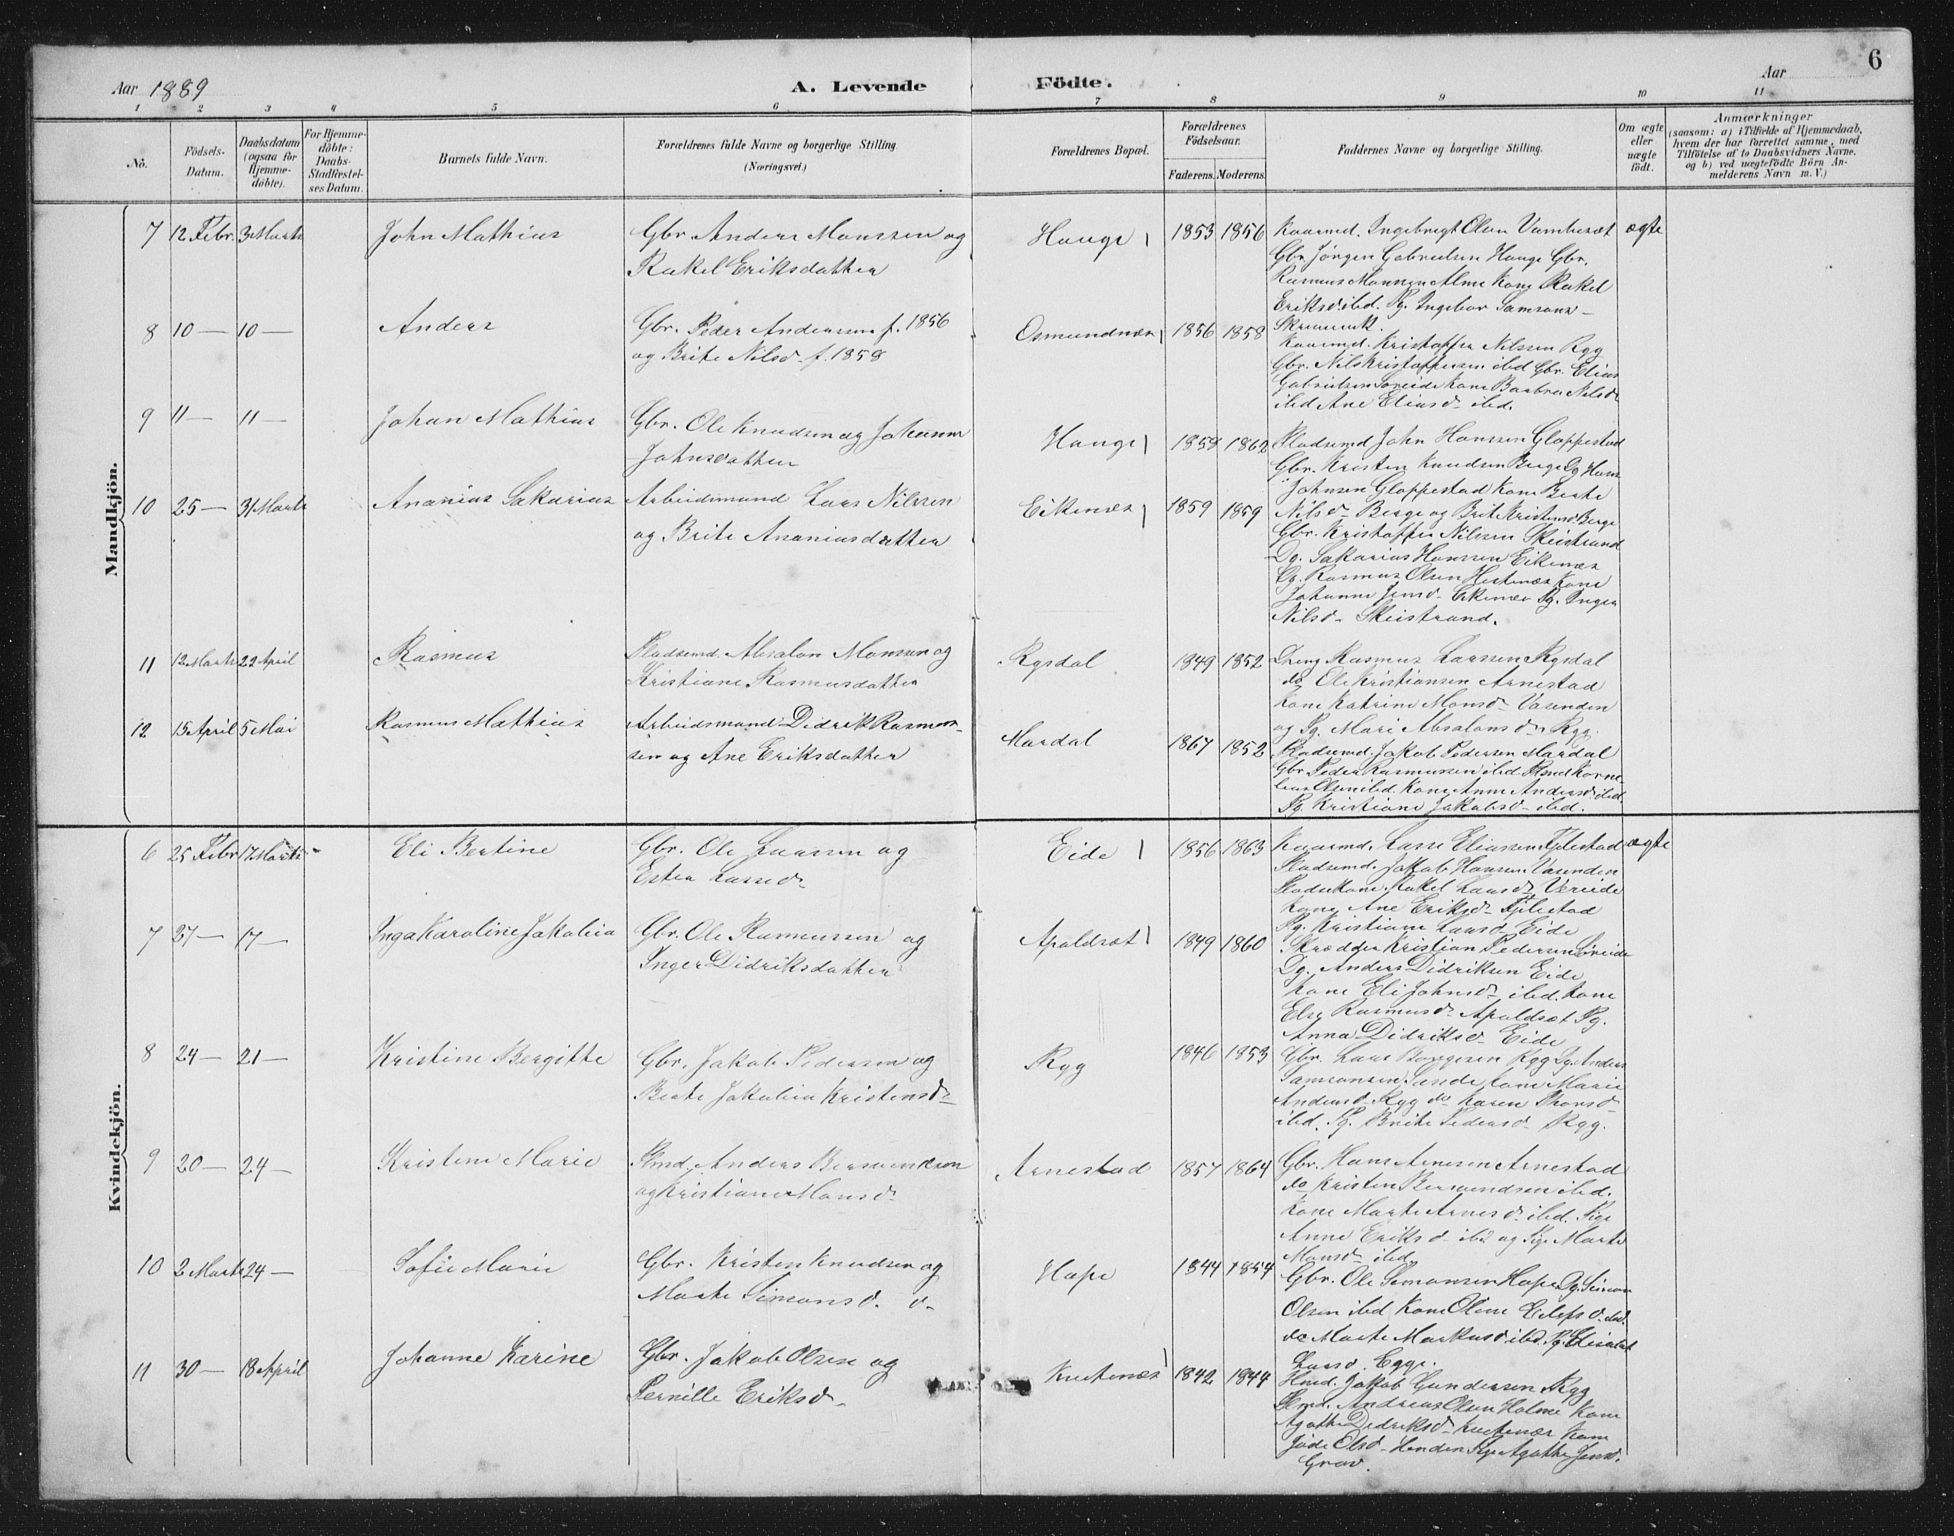 6
Aar 1889
A. Levende
Födte.
Aar
1 2 3 4 5 6 7 8 9 10 11
No.
Födsels-Datum.
Daabsdatum (ogsaa for Hjemme-döbte).
For Hjemme-döbte: Daabs-Stadfæstel-ses Datum.
Barnets fulde Navn.
Forældrenes fulde Navne og borgerlige Stilling.
(Næringsvei.)
Forældrenes Bopæl.
Forældrenes Födselsaar.
Faderens. Moderens.
Faddernes Navne og borgerlige Stilling.
Om ægte eller uægte födt.
Anmærkninger
(saasom: a) i Tilfælde af Hjemmedaab,
hvem der har forrettet samme, med
Tilföielse af to Daabsvidners Navne.
og b) ved uægtefödte Börn An-
melderens Navn m. V.)
Mandkjön.
7 12 Febr. 3 Marts John Mathias Gbr Anders Monssen og
Rakel Eriksdatter
Hauge 1853 1856 Kaarmd. Ingebregt Olsen ægte
Gbr. Jørgen Gabrielsen Hauge Gbr.
Rasmus Monssen Alme Kone Rakel
Eriksd ibd. Pg. Ingebor Samsons-
8 10 — 10 — Anders Gbr. Peder Anderssen f. 1856
og Brite Nilsd. f. 1858
Osmundnæs 1856 1858
Kaarmd. Kristoffer Nilssen Ryg
Gbr. Nils Kristoffersen ibd Gbr. Elias
Gabrielsen Søreide Kone Barbra Nilsd
ibd Ane Eliasd- ibd.
9 11 — 11 — Johan Mathias Gbr. Ole Knudsen og Johanne
Johnsdatter
Hauge 1859 1862 Pladsemd John Hanssen Gloppestad
Gbr. Kristen Knudsen Berge Dg Hans
Johnsen Gloppestad Kone Berte
Nilsd- Berge og Brit Kristensd. Berge
10 25 — 31 Marts Ananias Sakarias Arbeidsmand Lars Nilssen
og Brite Ananiasdatter
Eikenæs 1859 1859
Gbr. Kristoffer Nilssen Skeistrand
Dg. Sakarias Hanssen Eikenæs
Dg. Rasmus Olsen Hestenæs Kone
Johanne Jensd- Eikenæs Pg. Inger
Nilsd- Skeistrand.
11 12 Marts 22 April Rasmus Pladsemd. Absalon Monsen og
Kristiane Rasmusdatter
Rysdal 1849 1852 Dreng Rasmus Larssen Rysdal
do Ole Kristiansen Arnestad
Kone Katrine Monsd- Vasenden
og Pg. Mari Absalonsd- Ryg.
12 15 April 5 Mai Rasmus Mathias Arbeidsmand Didrik Rasmus-
sen og Ane Eriksdatter
Mardal 1867 1852 Pladsemd. Jakob Pedersen Mardal
Gbr. Peder Rasmussen ibd Plmd Korne-
lius Olsen ibd. Kone Anne Andersd ibd.
Pg. Kristiane Jakobsd- ibd.
Kvindekjön.
6 25 Febr 17 Marts Eli Bertine Gbr. Ole Larssen og
Ester Lassed-
Eide 1856 1863 Kaarmd. Lasse Eliassen Fjelestad ægte
Pladsemd. Jakob Hansen Vasenden
Pladsekone Rakel Larsd- Vereide
Kone Ane Eriksd- Fjelestad
Pg. Kristiane Larsd Eide
7 27 — 17 — Inga Karoline Jakobia Gbr. Ole Rasmussen og
Inger Didriksdatter
Apaldsæt 1849 1860 Skrædder Kristian Pedersen Søreide
Dg. Anders Didriksen Eide
Kone Eli Johnsd- ibd. Kone
Else Rasmusd- Apaldsæt Pg.
Anna Didriksd- Eide
8 24 — 21 — Kristine Bergitte Gbr. Jakob Pedersen og
Berte Jakobia Kristensd-
Ryg 1846 1853 Gbr. Lars Ryg Dg. Anders
Samsonsen Sande Kone Marie
Andersd- Ryg do Karen
ibd. Pg. Brite Pedersd- Ryg.
9 20 — 24 — Kristine Marie Plmd. Anders
og Kristiane Monsd-
Arnestad 1857 1864 Gbr. Hans Arnesen Arnestad
do Kristen ibd.
Kone Marte Arnesd. ibd. Pige
Anne Eriksd- ibd og Pige Marte
Monsd- ibd.
10 2 Marts 24 — Sofie Marie Gbr. Kristen Knudsen og
Marte Simonsd.
Hope 1844 1854 Gbr. Ole Simonsen Hope Dg. Simon
Olsen ibd Kone Oline ibd.
do Marte Markusd ibd. Pg. Elisabet
Larsd. Egge.
11 30 — 18 April Johanne Karine Gbr. Jakob Olsen og
Pernille Eriksd-
1842 1844 Hmd. Jakob Gundersen Ryg
Plmd. Andreas Olsen Holme Kone
Agathe Didriksd- Kone
Jøde Olsd- Henden Pige Agathe Jensd.
Grov.